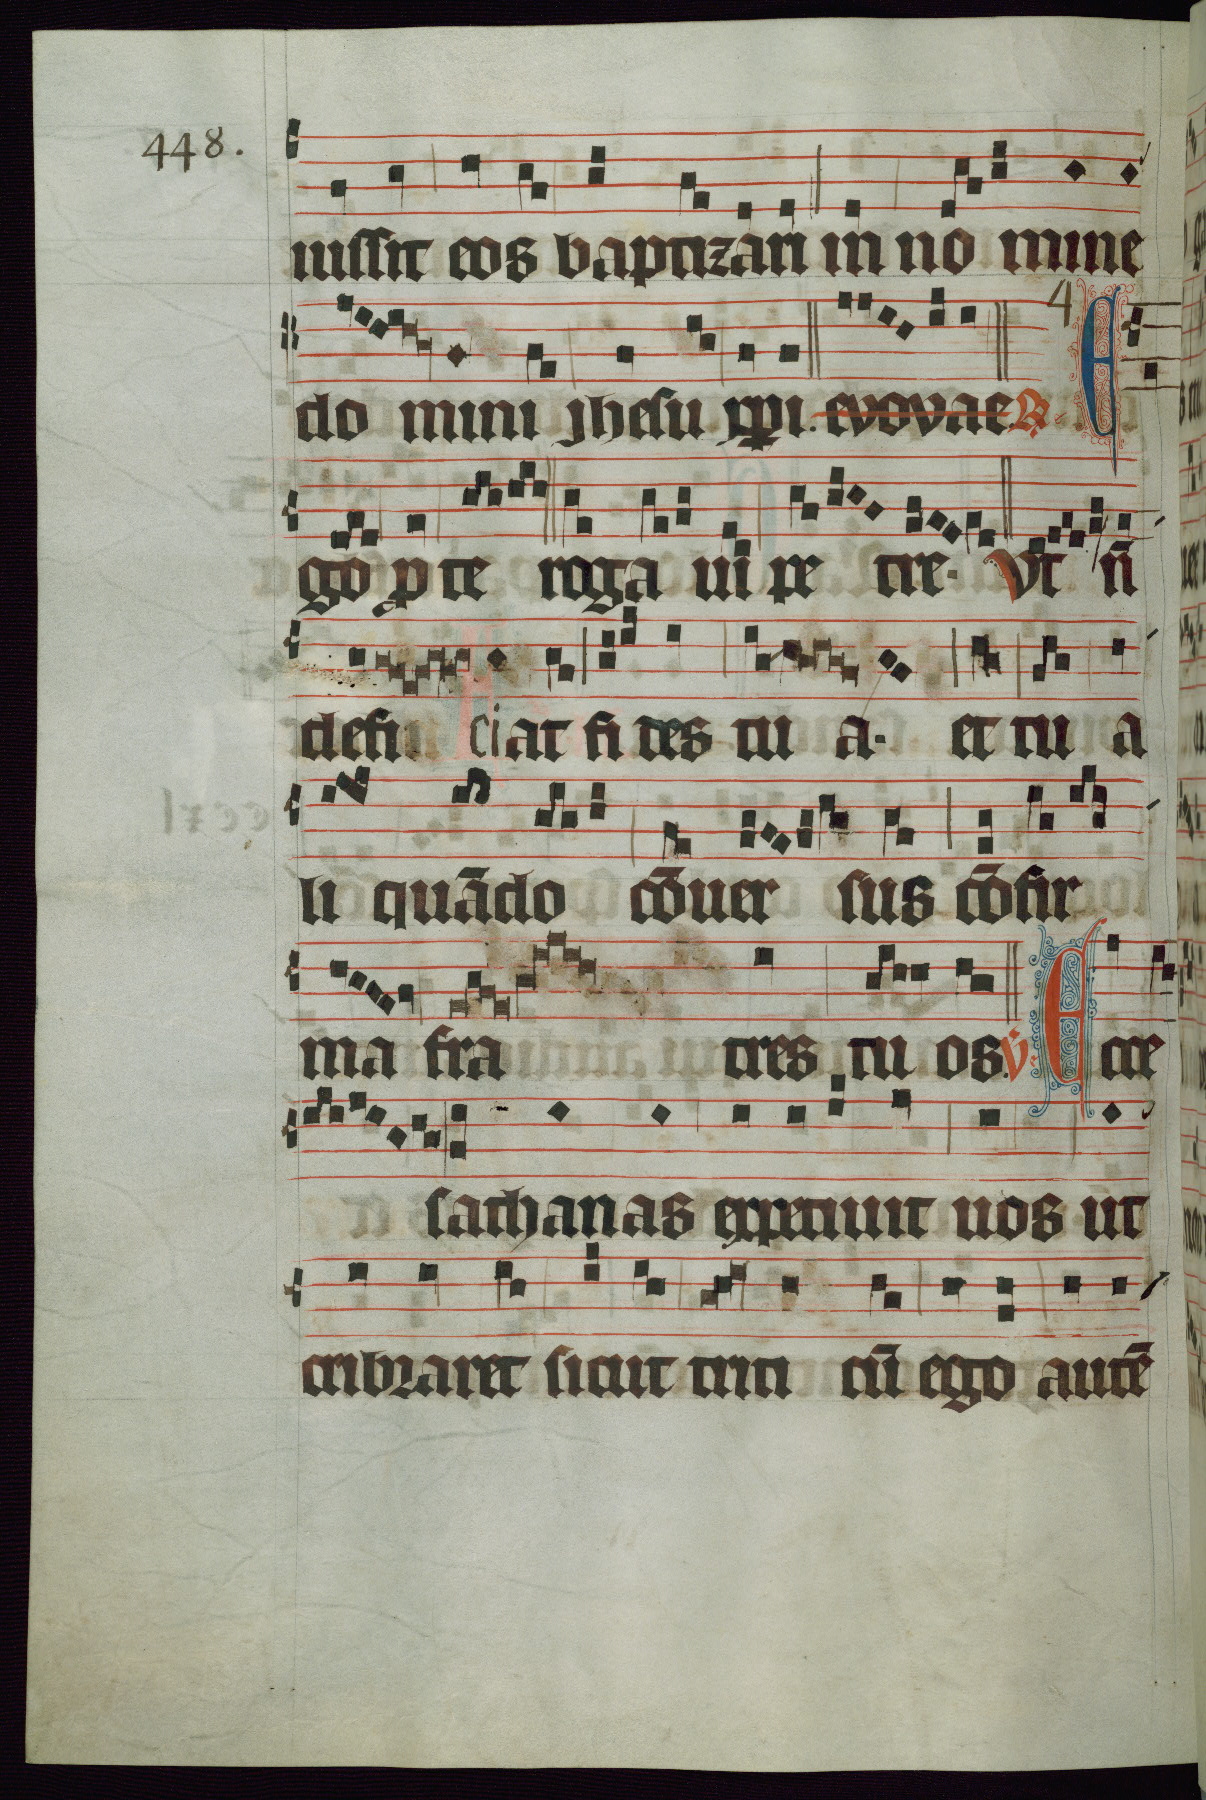 448.
iussit eos baptizari in no mine
4
do mini jhesu xpi. evovae R. E
go p te roga ui pe tre. Vt n̄
defi ciat fi des tu a. et tu a
li quādo cōuer sus cōfir
ma fra tres tu os. V. E cce
sathanas expetiuit uos ut
cribraret sicut triti cū ego autē